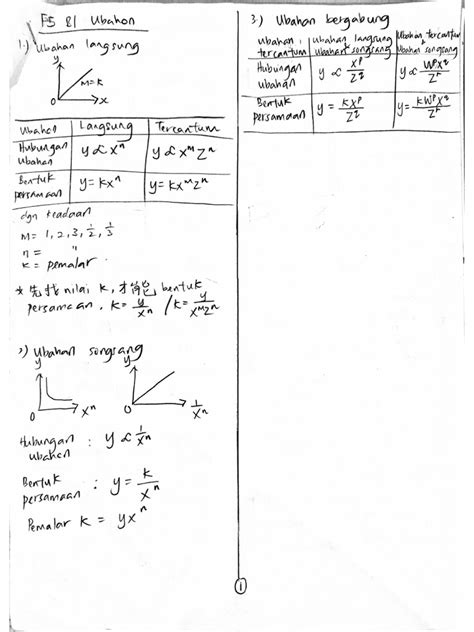 F5 B1 Ubahan
1.) Ubahan langsung
y
m=k
0
x
Ubahan Langsung Tercantum
Hubungan ubahan y ∝ xⁿ y ∝ xᵐzⁿ
Bentuk persamaan y=kxⁿ y=kxᵐzⁿ
dgn keadaan
m= 1, 2, 3, 1/2, 1/3
n = "
k = pemalar
* 先找 nilai k, 才能 bentuk
persamaan. k= y/xⁿ / k= y/xᵐzⁿ
2) Ubahan songsang
y
0
xⁿ
y
0
1/xⁿ
Hubungan ubahan : y ∝ 1/xⁿ
Bentuk persamaan : y = k/xⁿ
Pemalar k = yxⁿ
3.) Ubahan bergabung
Ubahan tercantum Ubahan langsung & Ubahan songsang Ubahan tercantum & Ubahan songsang
Hubungan ubahan y ∝ xᵖ/z^q y ∝ wᵖx^q/zʳ
Bentuk persamaan y = kxᵖ/z^q y = kwᵖx^q/zʳ
1